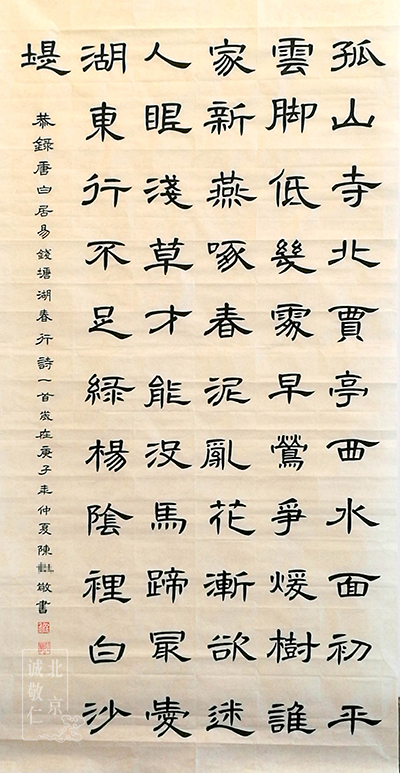 孤山寺北賈亭西水面初平
雲脚低幾處早鶯爭煖樹誰
家新燕啄春泥亂花漸欲迷
人眼淺草才能没馬蹄最愛
湖東行不足綠楊陰裡白沙
堤
恭錄唐白居易錢塘湖春行詩一首歲在庚子年仲夏陳敏書
北京
誠敬仁